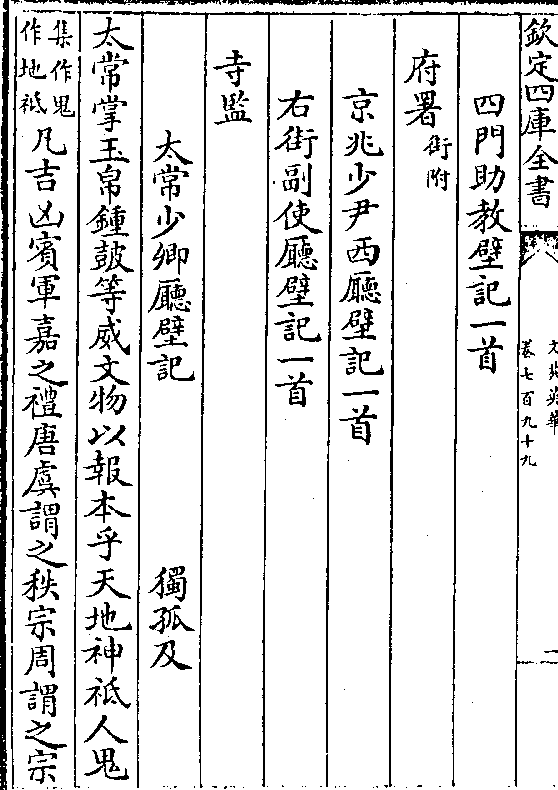 欽定四庫全書
文苑英華
卷七百九十九
一
四門助教壁記一首
府署街附
京兆少尹西廳壁記一首
右街副使廳壁記一首
寺監
太常少卿廳壁記 獨孤及
太常掌玉帛鍾鼓等威文物以報本乎天地神祗人鬼
集作鬼
作地祗
凡吉凶賓軍嘉之禮唐虞謂之秩宗周謂之宗